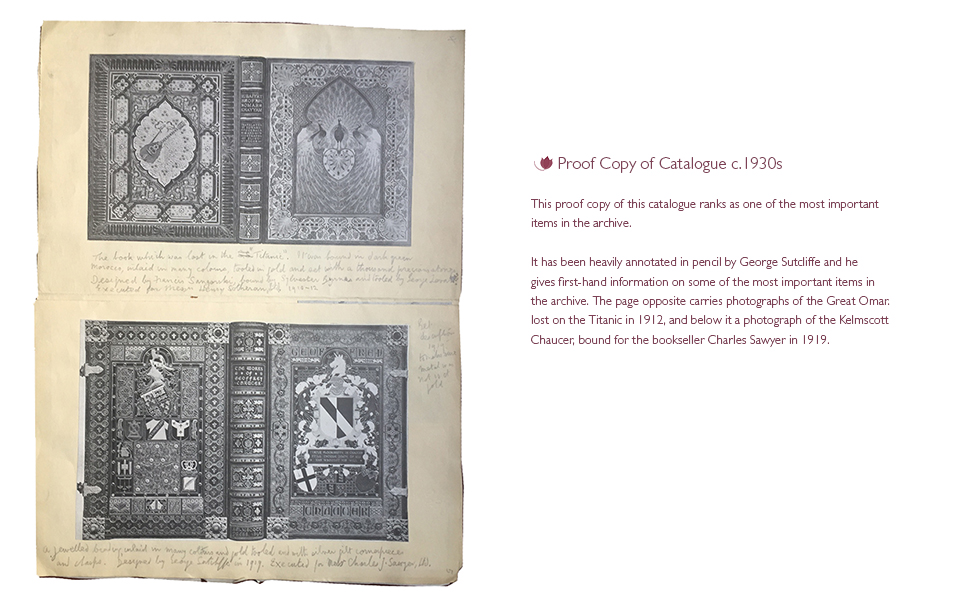 The book which was lost in the "Titanic". It was bound in dark green
morocco, inlaid in many colours, tooled in gold and set with a thousand precious stones
Designed by Francis Sangorski, bound by Sylvester Byrnes and tooled by George Lovett
Executed for Messrs Henry Sotheran, Ltd
THE WORKS
OF
GEOFFREY
CHAUCER
GEOFFREY
CHAUCER
a jewelled binding inlaid in many colours and gold tooled and with silver gilt cornerpieces
and clasps. Designed by George Sutcliffe in 1919. Executed for Messrs Charles J. Sawyer, Ltd.
Proof Copy of Catalogue c.1930s
This proof copy of this catalogue ranks as one of the most important
items in the archive.
It has been heavily annotated in pencil by George Sutcliffe and he
gives first-hand information on some of the most important items in
the archive. The page opposite carries photographs of the Great Omar.
lost on the Titanic in 1912, and below it a photograph of the Kelmscott
Chaucer, bound for the bookseller Charles Sawyer in 1919.